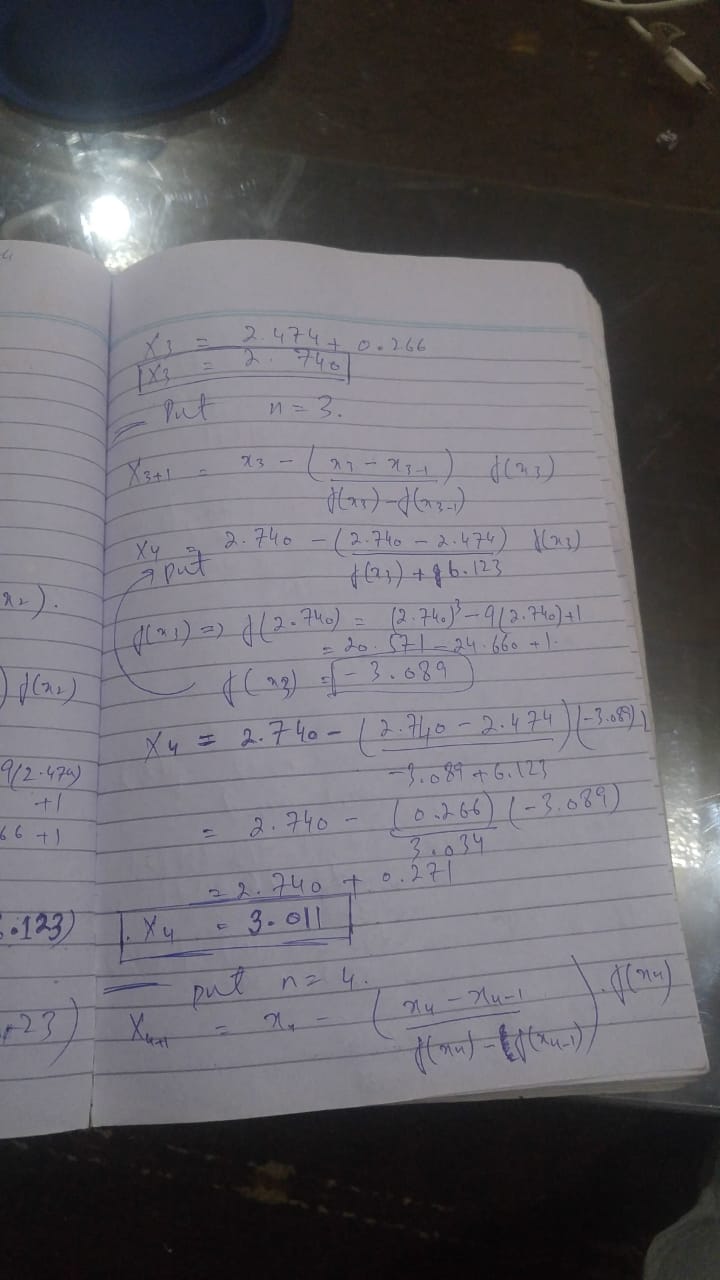 x₂).
) f(x₂)
9(2.474)
+1
66 +1
6.123)
.123)
X₃ = 2.474 + 0.266
X₃ = 2.740
Put n = 3.
X₃₊₁ = x₃ - (x₃ - x₃₋₁ / f(x₃) - f(x₃₋₁)) f(x₃)
X₄ = 2.740 - (2.740 - 2.474 / f(x₃) + 6.123) f(x₃)
put
f(x₃) => f(2.740) = (2.740)³ - 9(2.740) + 1
= 20.571 - 24.660 + 1.
f(x₃) = - 3.089
X₄ = 2.740 - (2.740 - 2.474 / -3.089 + 6.123) (-3.089)
= 2.740 - (0.266 / 3.034) (-3.089)
= 2.740 + 0.271
X₄ = 3.011
put n = 4.
X₄₊₁ = x₄ - (x₄ - x₄₋₁ / f(x₄) - f(x₄₋₁)) . f(x₄)